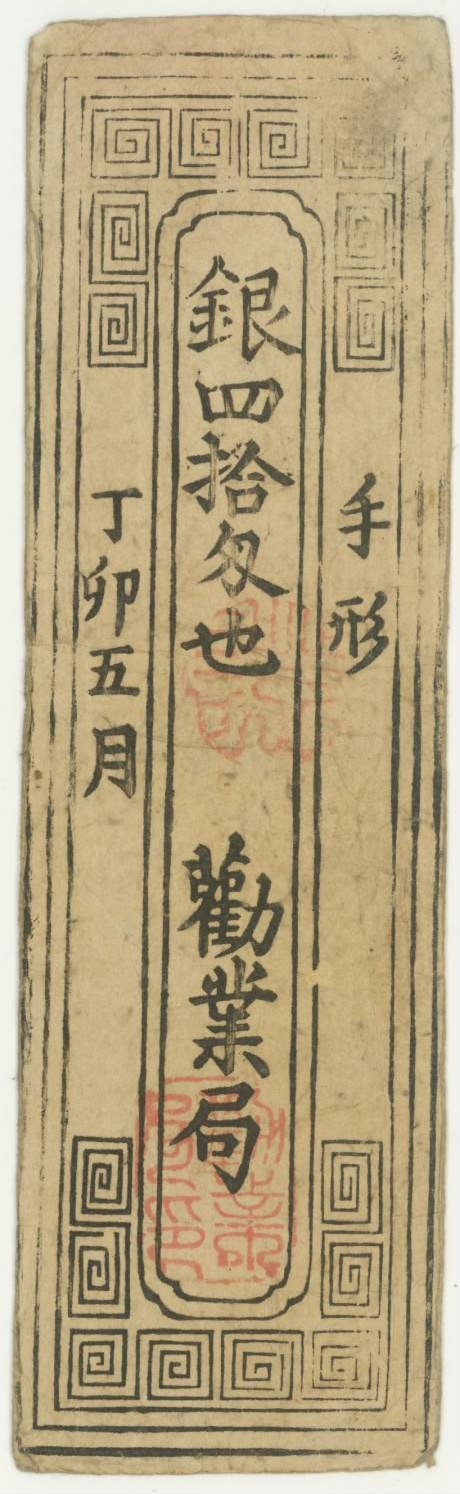 手形
銀四拾匁也 勸業局
丁卯五月